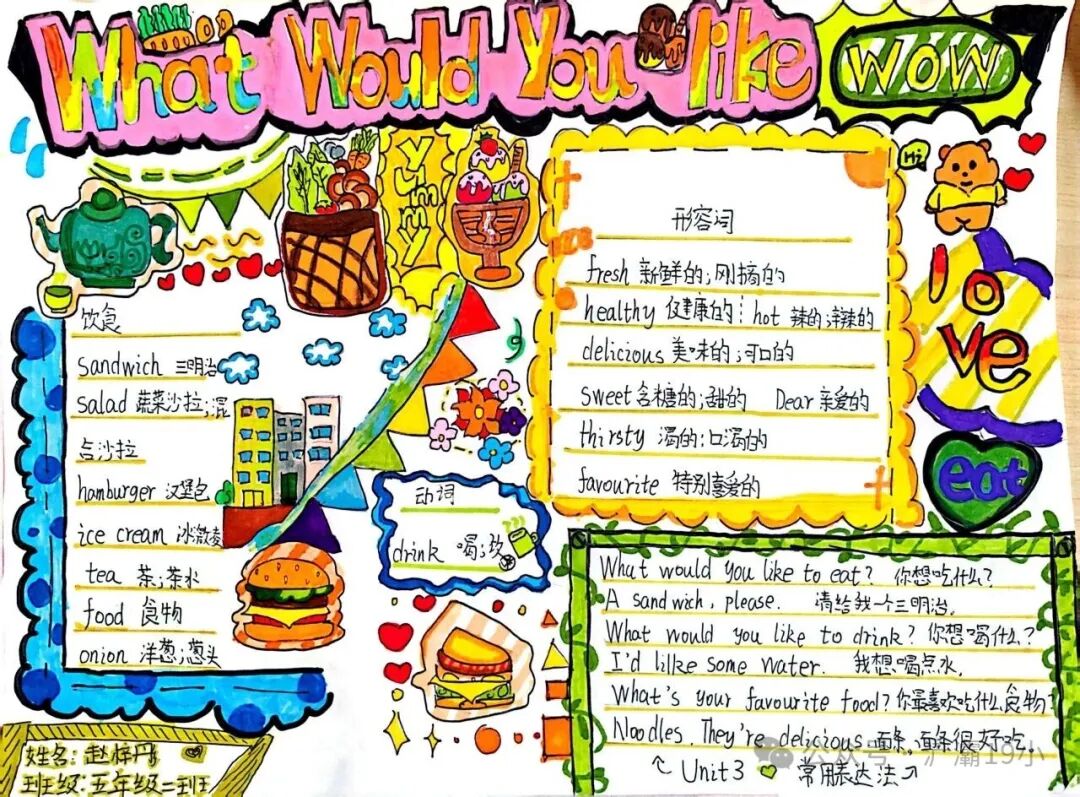 What Would You like
WOW
Yummy
Hi
love
eat
饮食
sandwich 三明治
salad 蔬菜沙拉;混
合沙拉
hamburger 汉堡包
ice cream 冰激凌
tea 茶;茶水
food 食物
onion 洋葱;葱头
动词
drink 喝;饮
形容词
fresh 新鲜的;刚摘的
healthy 健康的
hot 辣的;洋辣的
delicious 美味的;可口的
sweet 含糖的;甜的 Dear 亲爱的
thirsty 渴的;口渴的
favourite 特别喜爱的
What would you like to eat? 你想吃什么?
A sandwich, please. 请给我一个三明治。
What would you like to drink? 你想喝什么?
I'd lilke some water. 我想喝点水.
What's your favourite food? 你最喜欢吃什么食物?
Noodles. They're delicious. 面条,面条很好吃.
Unit3 常用表达法
姓名: 赵梓丹
班级: 五年级二班
公众号 · 浐灞19小